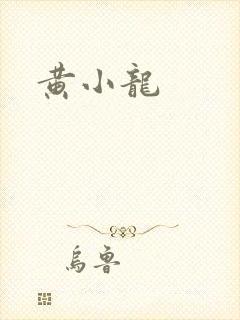 黄小龍
烏魯